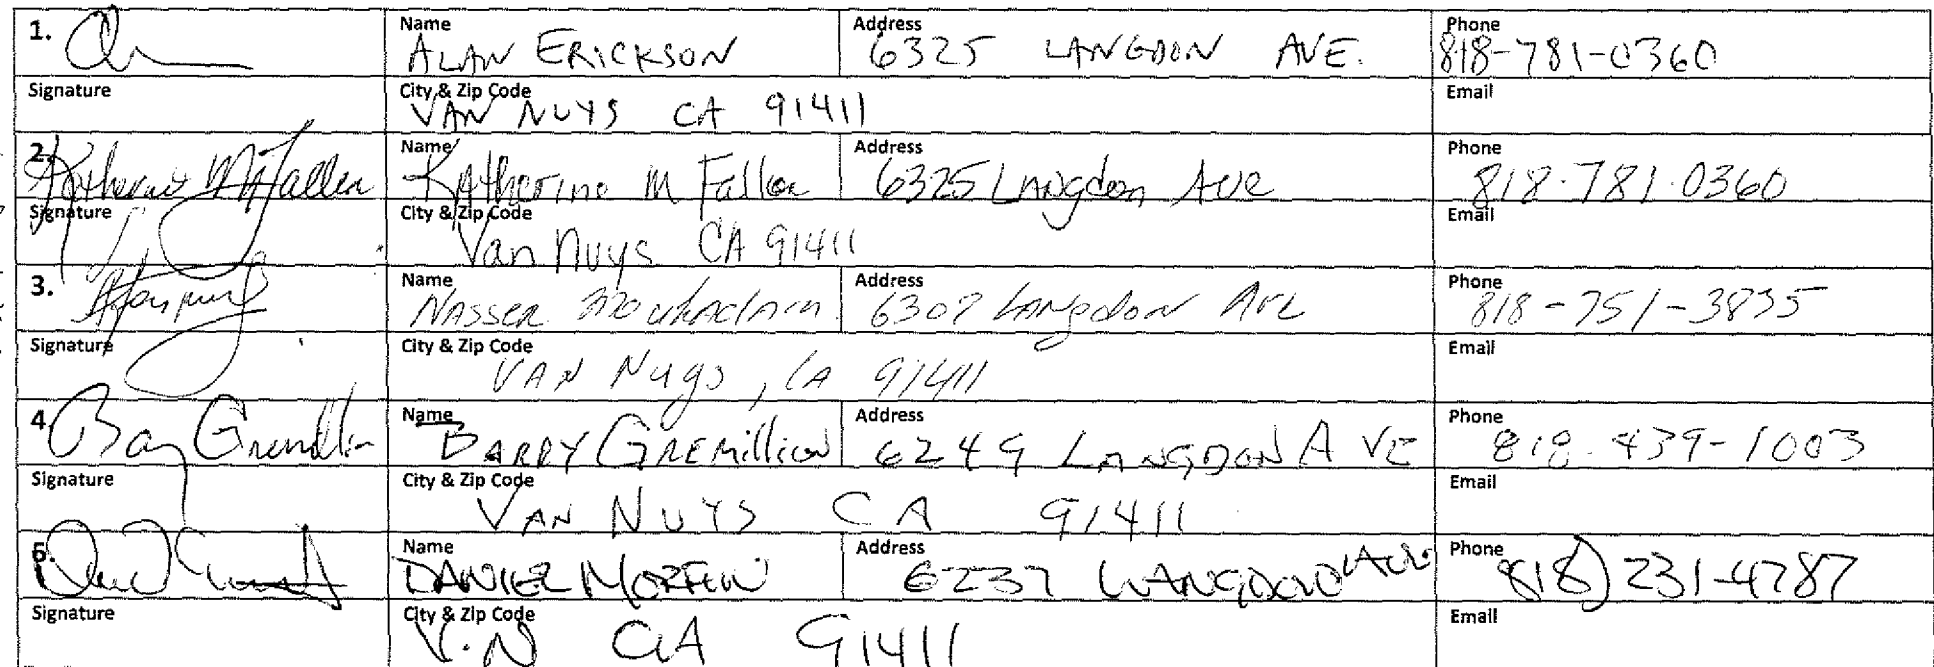 1. Name ALAN ERICKSON Address 6325 LANGDON AVE. Phone 818-781-0360
Signature City & Zip Code VAN NUYS CA 91411 Email
2. Katherine M Fallen Name Katherine M Fallen Address 6325 Langdon Ave Phone 818.781.0360
Signature City & Zip Code Van Nuys CA 91411 Email
3. Name NASSER Address Langdon Ave Phone
Signature City & Zip Code VAN Nuys, CA 91411 Email
4 Name BARRY GREMillion Address 6249 LANGDON AVE Phone 818-439-1003
Signature City & Zip Code VAN NUYS CA 91411 Email
5. Name DANIEL Address 6237 LANGDON AVE. Phone 818) 231-4787
Signature City & Zip Code V.N CA 91411 Email